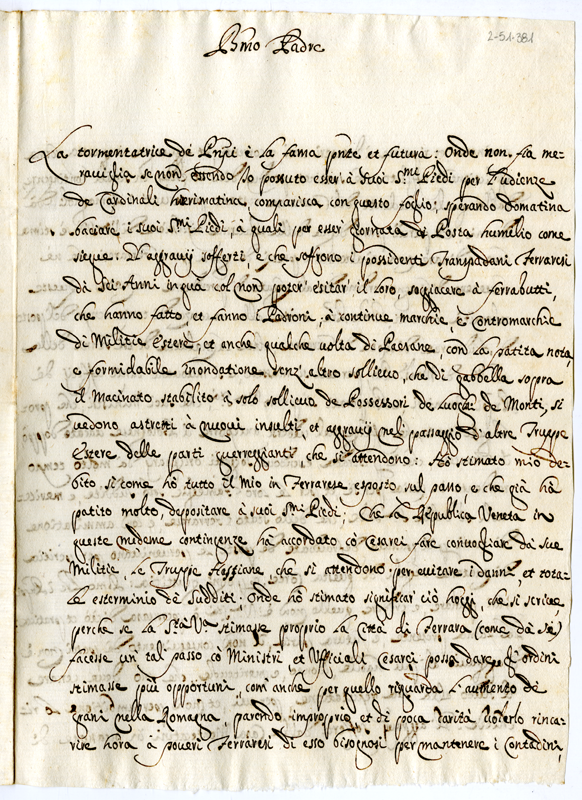 2-51-381
B.mo Padre
La tormentatrice de Pnpi è la fama pnte et futura: Onde non fia me-
raviglia se non essendo Io possuto esser à Suoi S.mi Piedi per l'udienza
de Cardinali hierimatina, comparisca con questo foglio, sperando Domatina
baciare i suoi S.mi Piedi, à quali per esser giornata di Posta humilio come
siegue: L'aggravij sofferti, e che soffrono i possidenti Transpadani Ferraresi
da sei Anni in quà col non poter esitar il loro, soggiacere à ferrabutti,
che hanno fatto et fanno i Padroni, à continue marchie, e contromarchie
di Militie Estere, et anche qualche volta di Paesane, con la patita nota,
e formidabile inondatione senz'altro sollievo, che di gabbella sopra
il Macinato stabilito à solo sollievo de Possessori de luoghi de Monti, si
vedono astretti à nuovi insulti, et aggravij nel passaggio d'altre Truppe
Estere delle parti guerreggianti, che si attendono: Hò stimato mio de-
bito si come hò tutto il Mio in Ferrarese esposto sul pano, e che già hà
patito molto depositare à suoi S.mi Piedi, Che la Republica Veneta in
queste medeme contingenze hà accordato cò Cesarei fare convogliare da sue
Militie, le Truppe Hassiane, che si attendono per evitare i danni, et tota-
le esterminio de Sudditi, Onde hò stimato significar ciò hoggi, che si scrive
perche se la S.tà V.a stimasse proprio la Città di Ferrara (come da se)
facesse un tal passo cò Ministri, et Ufficiali Cesarei possa dare gl'ordini
stimasse più opportuni, com'anche per quello riguarda l'aumento de
grani nella Romagna, parendo improprio et di poca carità volerlo rinca-
rire hora à poveri Ferraresi di esso bisognosi per mantenere i Contadini,